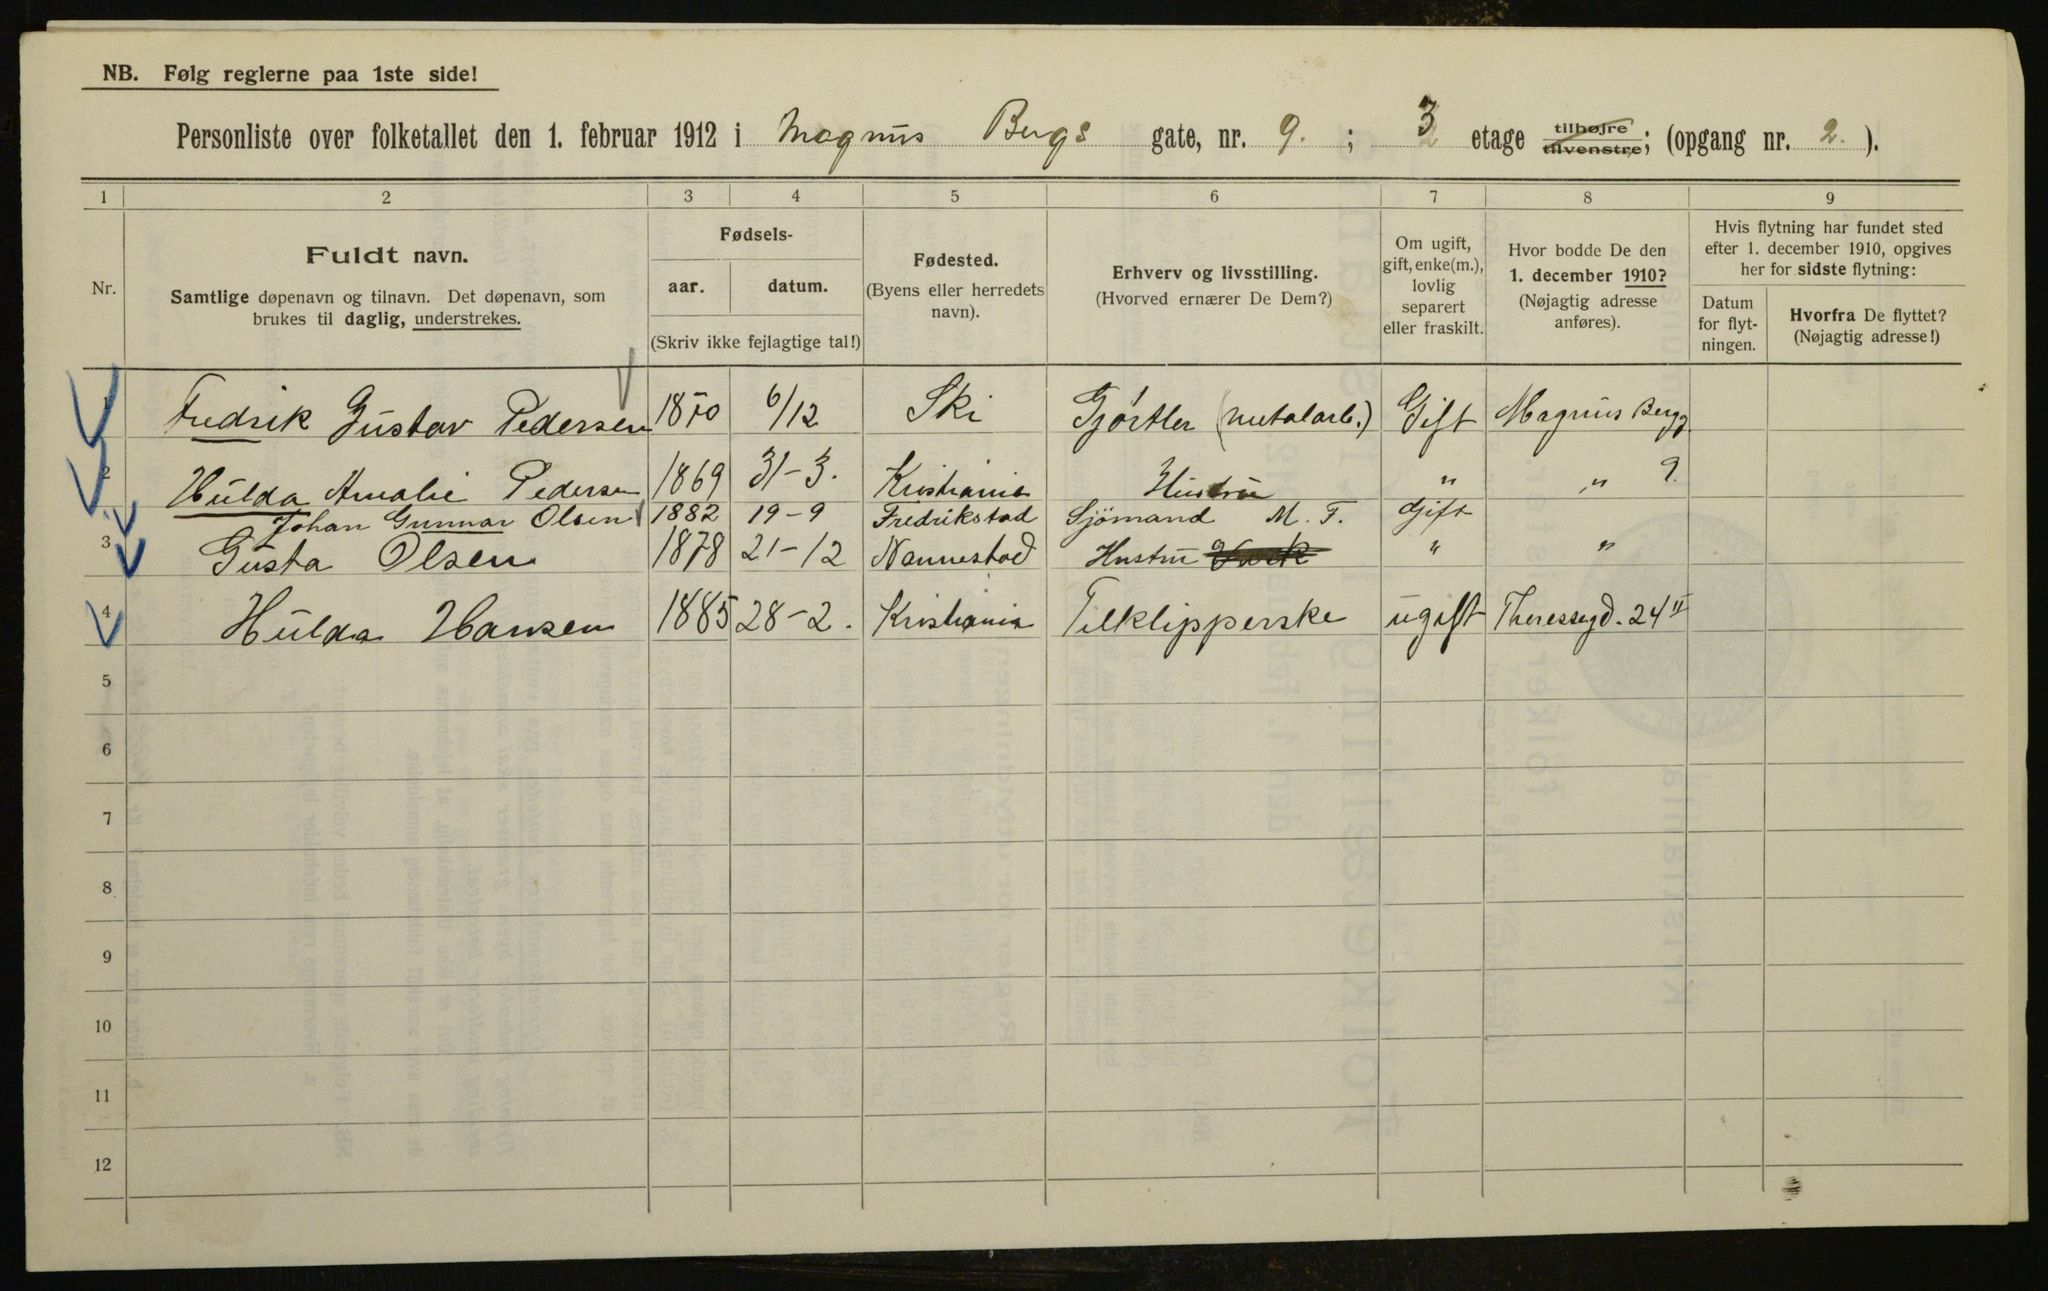 NB. Følg reglerne paa 1ste side!
Personliste over folketallet den 1. februar 1912 i Magnus Bergs gate, nr. 9. ; 3 etage tilhøjre tilvenstre; (opgang nr. 2. ).
1 2 3 4 5 6 7 8 9
Nr.
Fuldt navn.
Samtlige døpenavn og tilnavn. Det døpenavn, som
brukes til daglig, understrekes.
Fødsels-
aar. datum.
(Skriv ikke fejlagtige tal!)
Fødested.
(Byens eller herredets
navn).
Erhverv og livsstilling.
(Hvorved ernærer De Dem?)
Om ugift,
gift, enke(m.),
lovlig
separert
eller fraskilt.
Hvor bodde De den
1. december 1910?
(Nøjagtig adresse
anføres).
Hvis flytning har fundet sted
efter 1. december 1910, opgives
her for sidste flytning:
Datum
for flyt-
ningen.
Hvorfra De flyttet?
(Nøjagtig adresse!)
1 Fredrik Gustav Pedersen 1870 6/12 Ski Gjørtler (metalarb.) Gift Magnus Bergg.
2 Hulda Amalie Pedersen 1869 31-3. Kristiania Hustru " " 9.
Johan Gunnar Olsen 1882 19-9 Fredrikstad Sjömand M. F. Gift
3 Gusta Olsen 1878 21-12 Nannestad Hustru " "
4 Hulda Hansen 1885 28-2. Kristiania Tilklipperske ugift Theresegd. 24 II
5
6
7
8
9
10
11
12